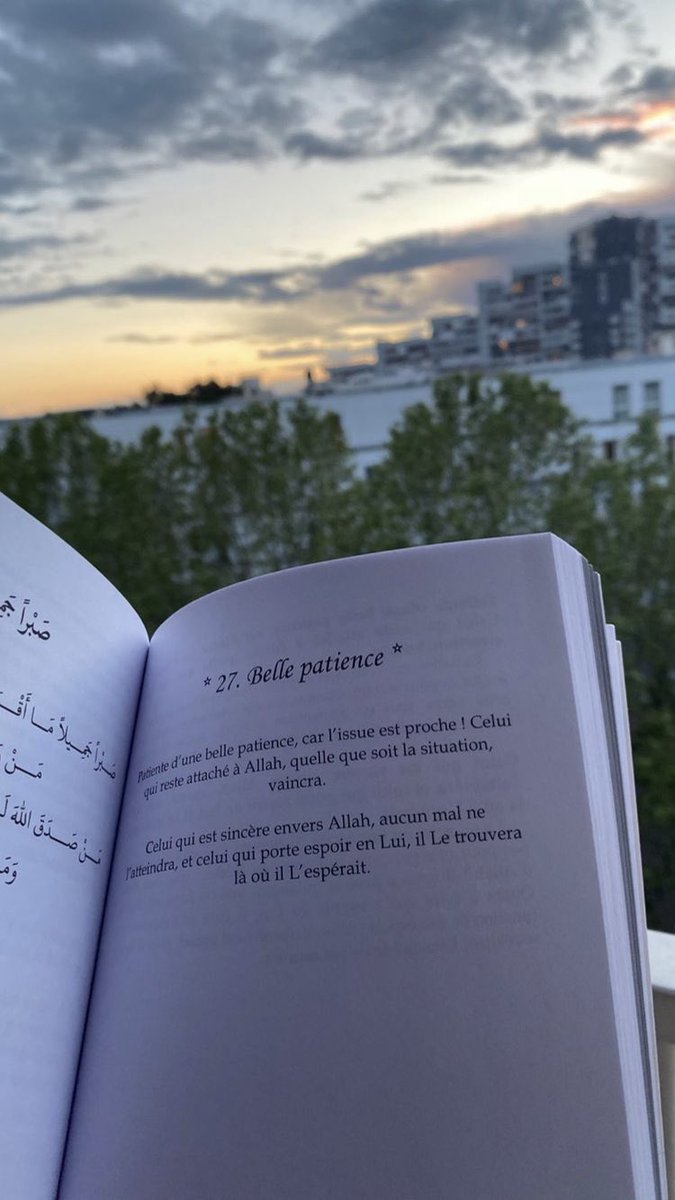 صَبْراً
صَبْراً جَمِيلاً مَا
مَنْ
مَنْ صَدَقَ اللهَ
* 27. Belle patience *
Patiente d’une belle patience, car l’issue est proche ! Celui
qui reste attaché à Allah, quelle que soit la situation,
vaincra.
Celui qui est sincère envers Allah, aucun mal ne
l’atteindra, et celui qui porte espoir en Lui, il Le trouvera
là où il L’espérait.